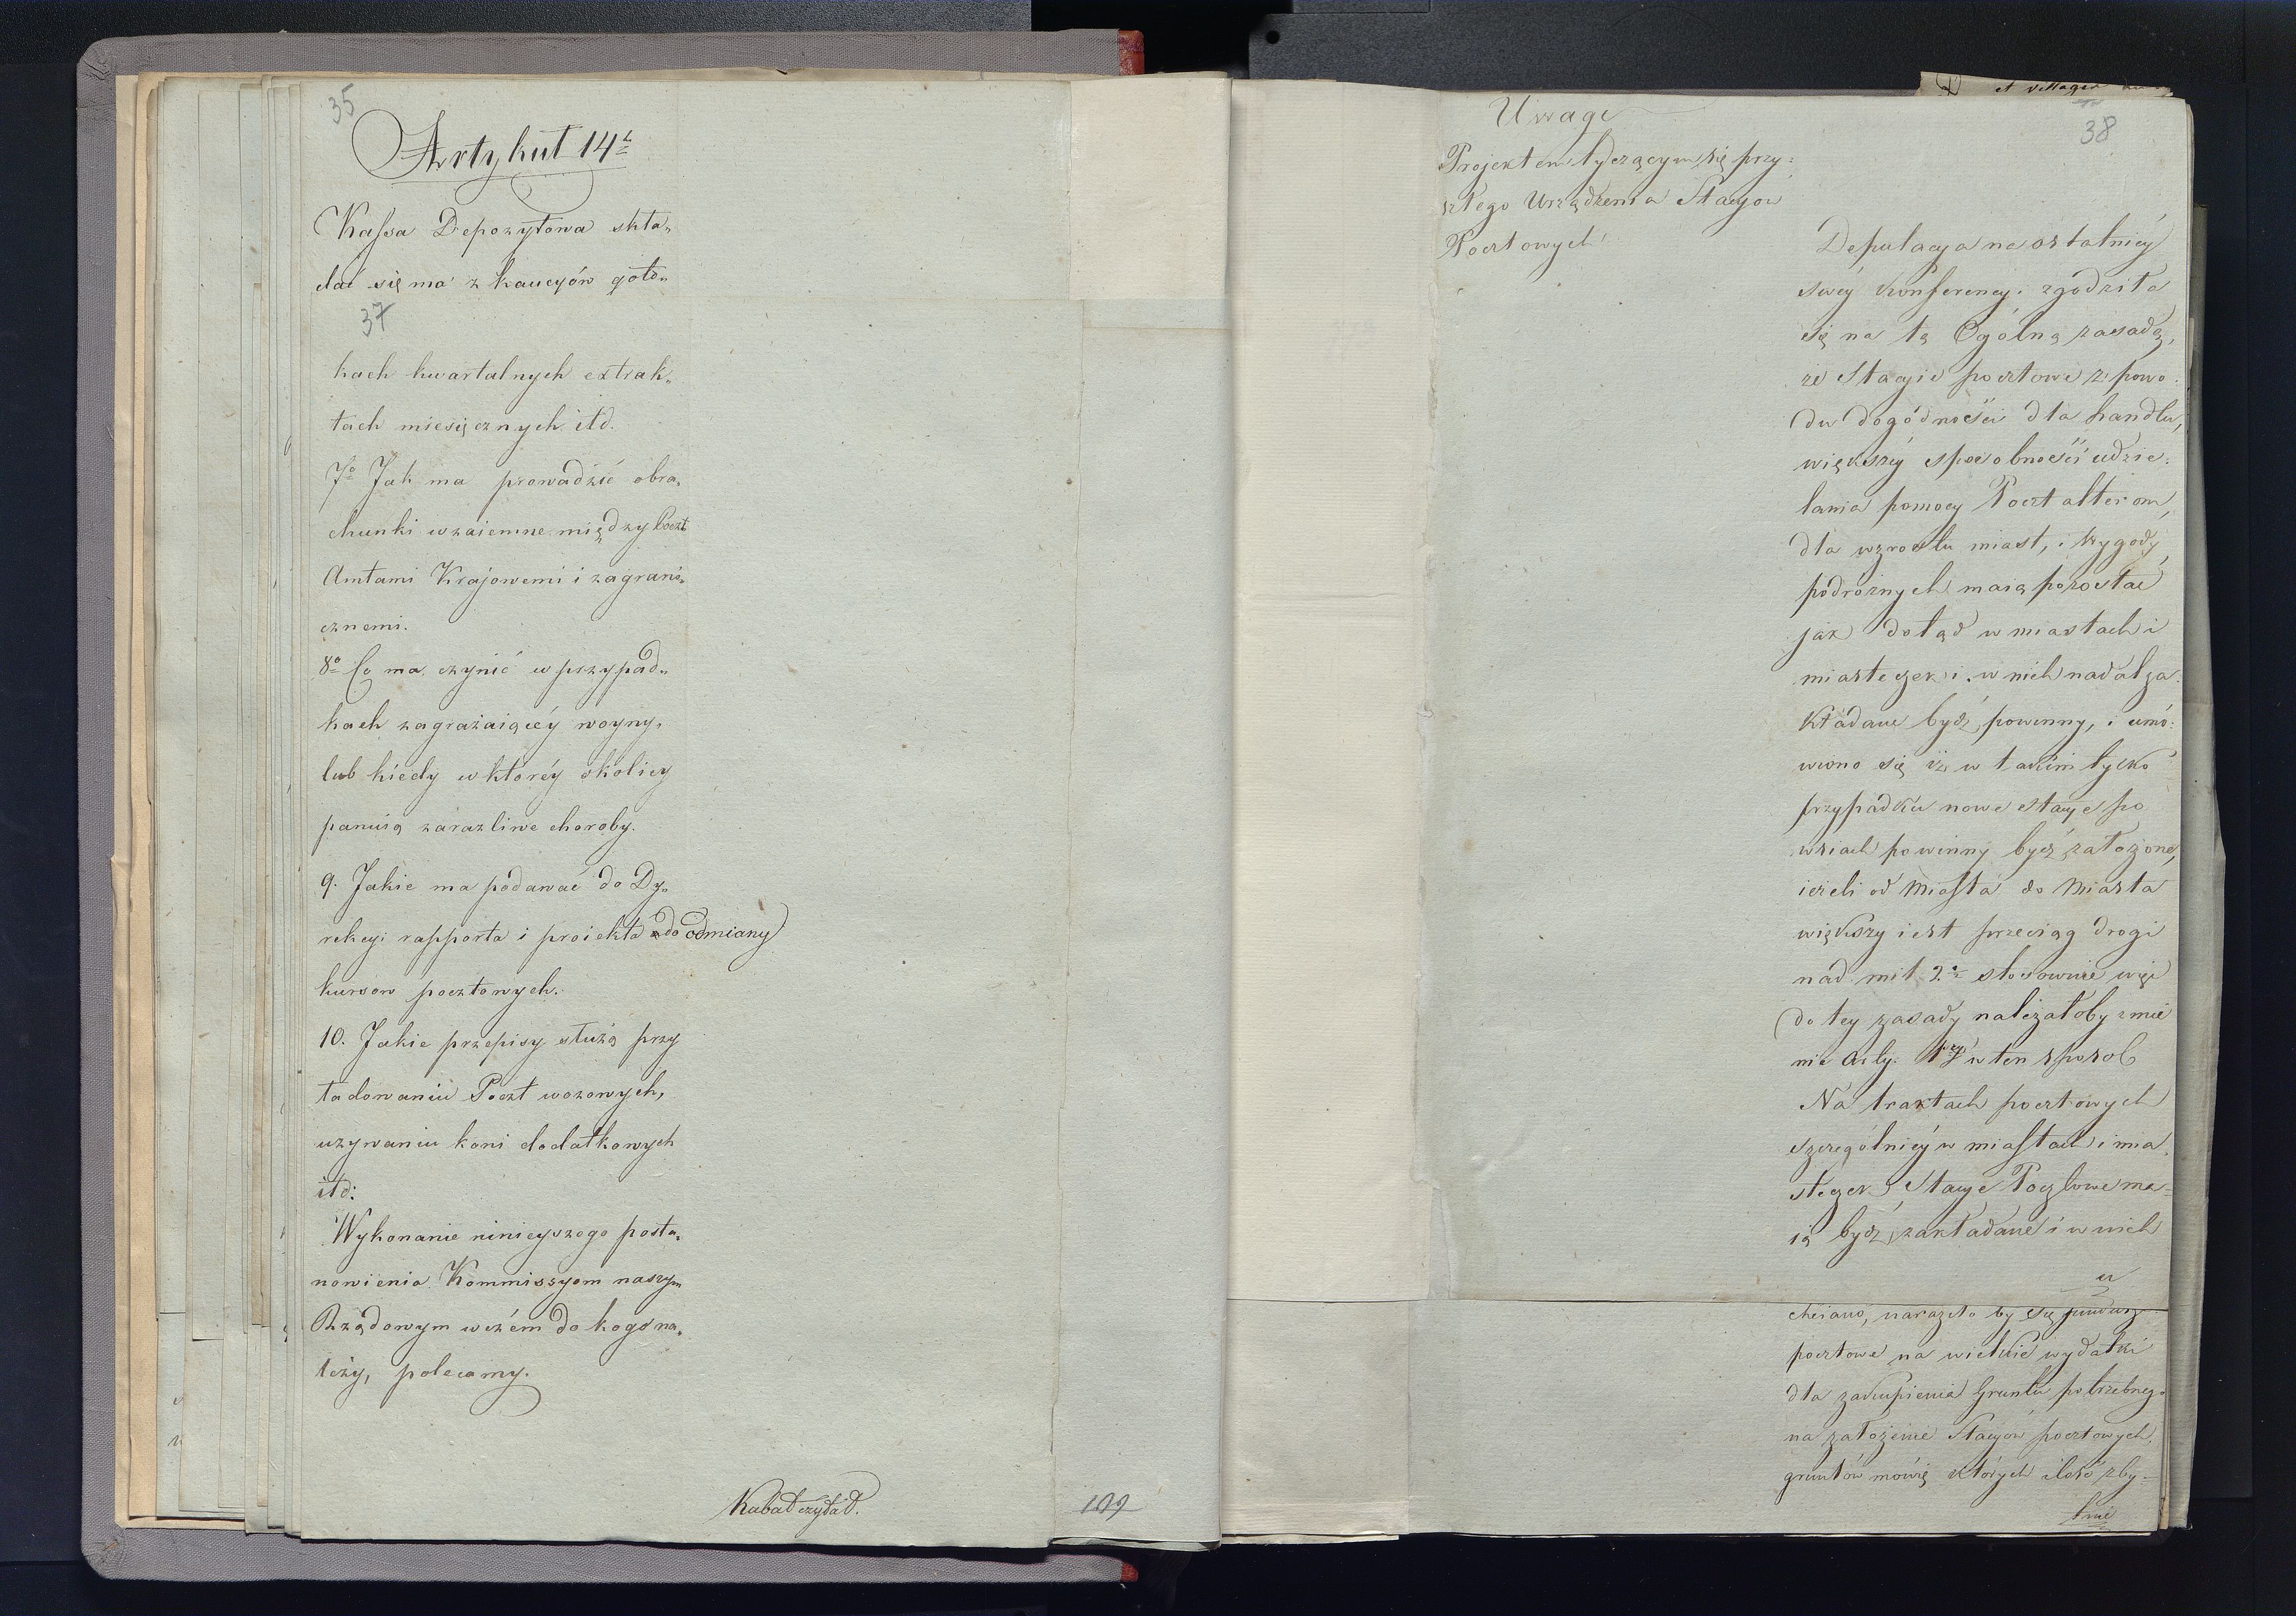 35
Artykuł 14ty
Kassa Depozytowa skła„
dać się ma z kaucyów goto„
37
kach kwartalnych extrak„
tach miesięcznych itd.
7o Jak ma prowadzić obra„
chunki wzaiemne między Poczt
Amtami Krajowemi i zagrani„
cznemi.
8o Co ma czynić w przypad„
kach zagrażaiącéy woyny,
lub kiedy w któréy okolicy
panuią zaraźliwe choroby.
9. Jakie ma podawać do Dy„
rekcyi rapporta i proiekta do odmiany
kursow pocztowych.
10. Jakie przepisy służą przy
ładowaniu Poczt wozowych,
uzywaniu koni dodatkowych
itd:
Wykonanie ninieyszego posta„
nowienia Kommissyom naszym
Rządowym wczém do kogo na„
leży, polecamy.
Kabat czytał.
199
et villages
38
Uwagi
Projektem tyczącym się przy:
szłego Urządzenia Stacyow
Pocztowych
Deputacya na ostatniéy
swéy Konferencyi zgodziła
się na tą Ogólną zasadę,
ze Stacyie pocztowe z powo:
du dogódności dla handlu,
większéy sposobności udzie:
lania pomocy Pocztalterom,
dla wzrostu miast, i Wygody
podróżnych maią pozostać
jak dotąd w miastach i
miasteczek i w nich nadal za:
kładane bydź powinny, i umó:
wiono się iż w takim tylko
przypadku nowe stacye po
wsiach powinny bydź założone,
ieżeli od Miasta do Miasta
większy iest przeciąg drogi
nad mil 2. stosownie więc
do tey zasady należałoby zmie
nić Arty. 1szy w ten sposob
Na traktach pocztowych
szczególniéy w miastach i mia:
steczek Stacye Pocztowe ma=
ią bydź zakładane i w nich
u
chciano, naraziło by się fundusz
pocztowe na wielkie wydatki
dla zakupienia Gruntu potrzebnego
na założenie Stacyów pocztowych,
gruntów mówię których ilość zby=
tnie